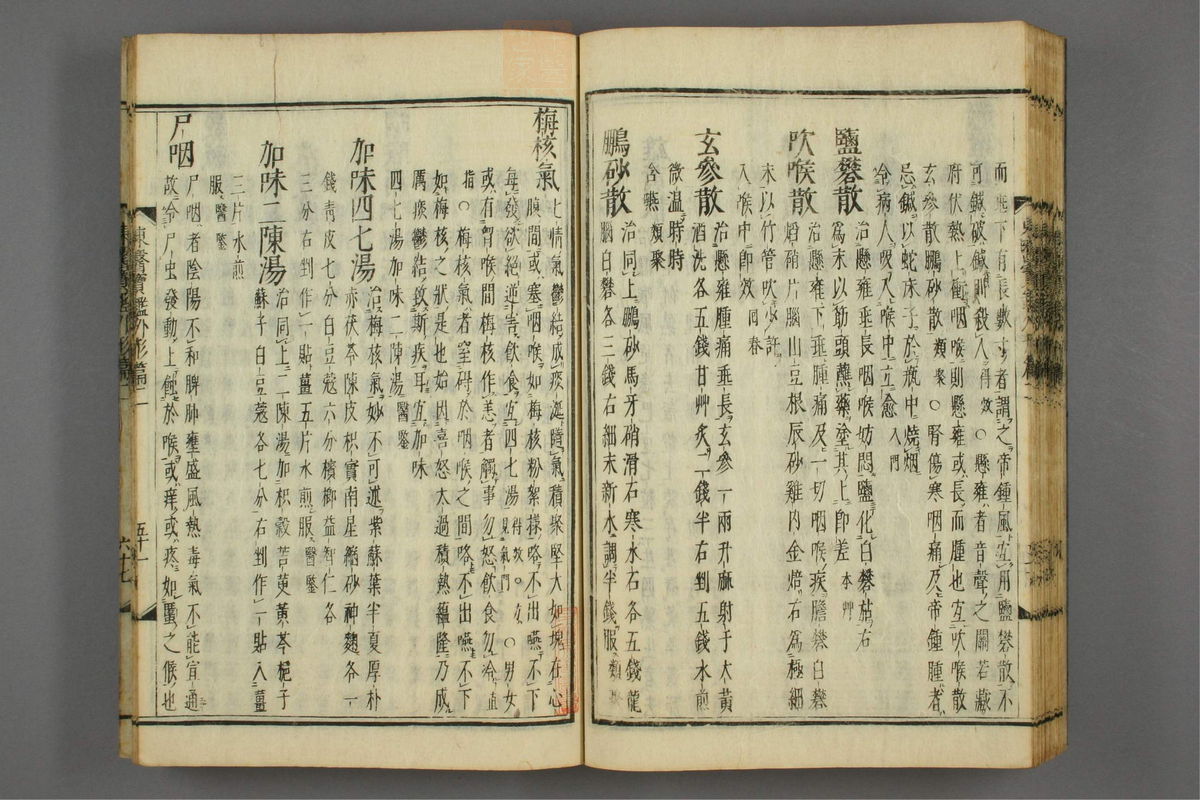 而下有長數寸者謂之帝鍾風宜用鹽礬散不
可鍼破鍼則殺人得效○懸雍者音聲之關若藏
府伏熱上衝咽喉則懸雍或長而腫也宜吹喉散
玄參散鵬砂散類聚○腎傷寒咽痛及帝鍾腫者
忌鍼以蛇床子於瓶中燒烟
令病人吸入喉中立愈入門
鹽礬散治懸雍垂長咽喉妨悶鹽化白礬枯右
爲末以筋頭蘸藥塗其上卽差本艸
吹喉散治懸雍下垂腫痛及一切咽喉疾膽礬白礬
焰硝片腦山豆根辰砂雞內金焙右爲極細
末以竹管吹少許
入喉中卽效回春
玄參散治懸雍腫痛垂長玄參一兩升麻射干大黃
酒洗各五錢甘艸炙一錢半右剉五錢水煎
微溫時時
含嚥類聚
鵬砂散治同上鵬砂馬牙硝滑石寒水石各五錢龍
腦白礬各三錢右細末新水調半錢服類聚
梅核氣七情氣鬱結成痰涎隨氣積聚堅大如塊在心
腹間或塞咽喉如梅核粉絮樣咯不出嚥不下
每發欲絶逆害飮食宜四七湯方見氣門得效○男女
或有胃喉間梅核作恙者觸事勿怒飮食勿冷直
指○梅核氣者窒碍於咽喉之間咯不出嚥不下
如梅核之狀是也始因喜怒太過積熱蘊隆乃成
厲痰鬱結致斯疾耳宜加味
四七湯加味二陳湯醫鑒
加味四七湯治梅核氣妙不可述紫蘇葉半夏厚朴
赤茯苓陳皮枳實南星縮砂神麴各一
錢靑皮七分白豆蔲六分檳榔益智仁各
三分右剉作一貼薑五片水煎服醫鑒
加味二陳湯治同上二陳湯加枳殼苦莄黃芩梔子
蘇子白豆蔲各七分右剉作一貼入薑
三片水煎
服醫鑒
尸咽尸咽者陰陽不和脾肺壅盛風熱毒氣不能宣通
故令尸虫發動上蝕於喉或痒或疼如䘌之候也
東醫寶鑑外形篇二
五十一